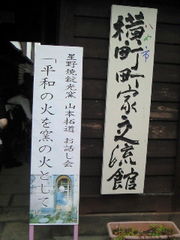 星野焼錠光窯 山本拓道 お話し会
「平和の火を窯の火として」
横町町家交流館